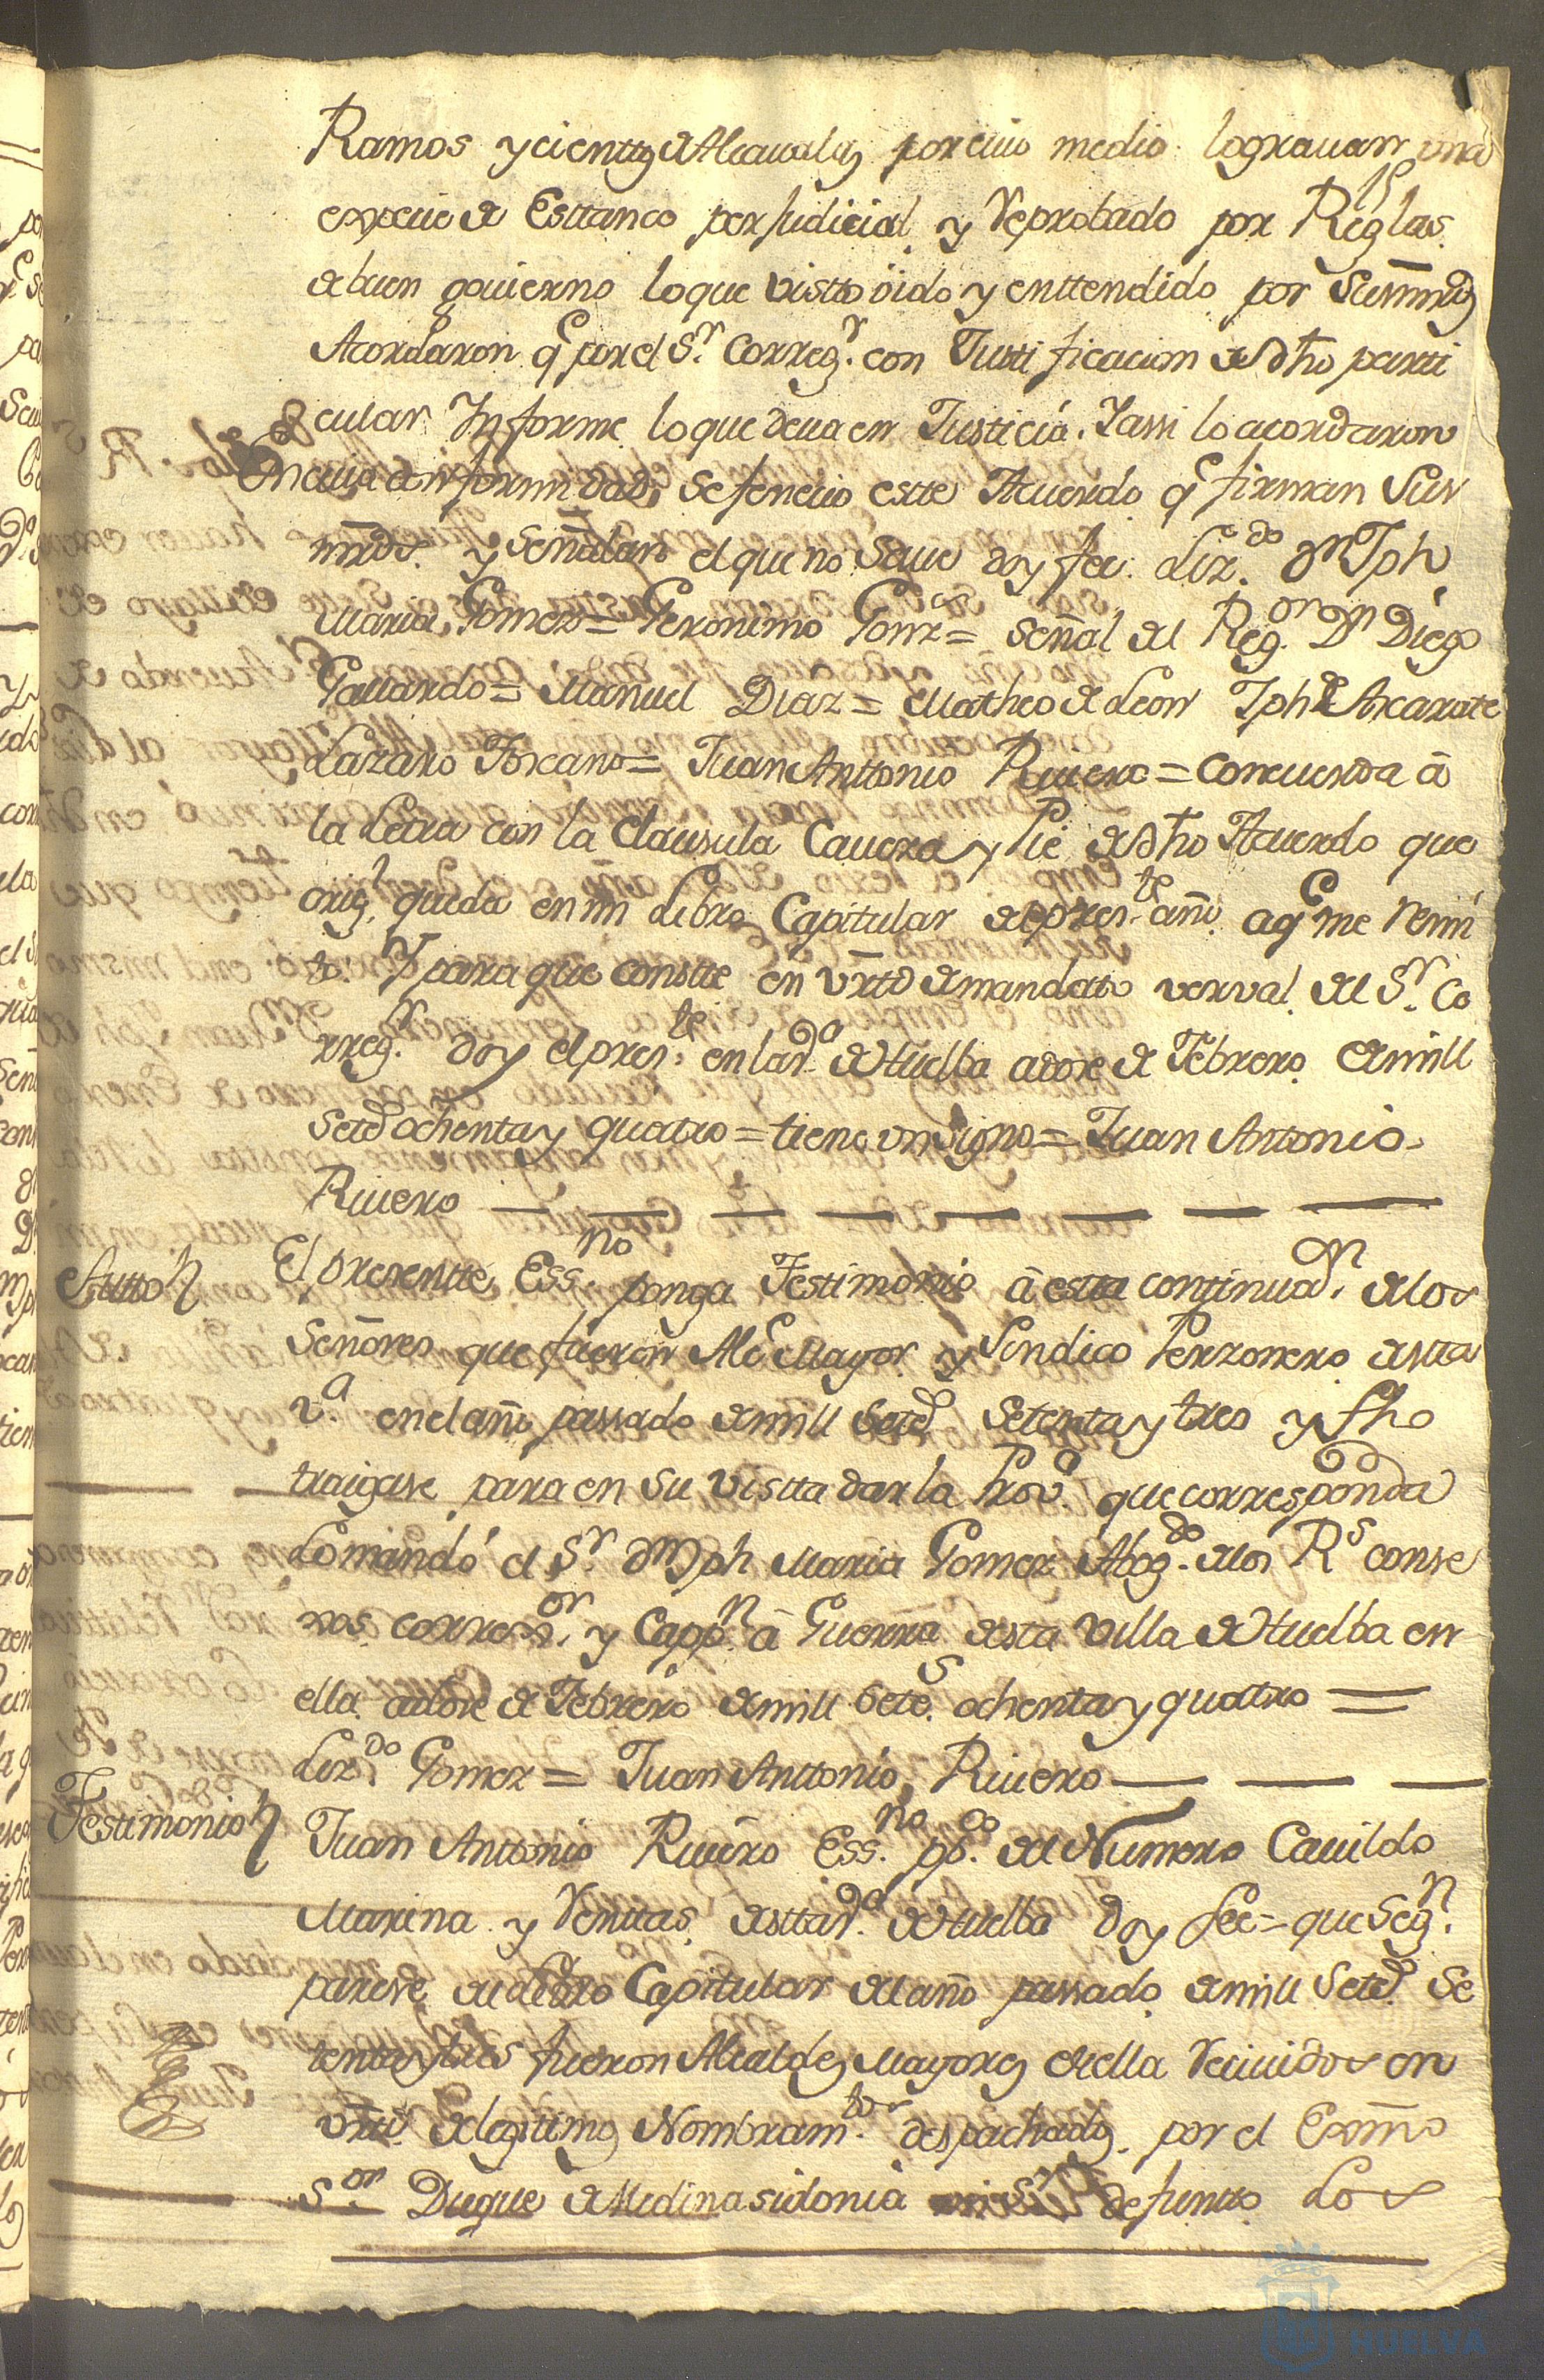 Ramos y cienttos de Alcavalas por cuio medio lograuan una
especie de Esttanco perjudicial y Reprobado por Reglas
15
de buen gouierno lo que vistto oido y enttendido por Susmrds
Acordaron q.e por el S.r Correg.r con Justificacion de dho parti
cular Informe lo que deua en Justicia. Y assi lo acordaron
En cuia conformidad, se fenecio estte Acuerdo q.e firman Sus
mrds. y señalan el que no saue doy fee. Liz.do Dn Jph
Maria Gomez = Geronimo Gonz = señal del Reg.or Dn Diego
Gallardo = Manuel Diaz = Matheo de Leon Jph de Arcarate
Lazaro Toscano = Juan Anttonio Riuero = Concuerda â
la Letra con la Clausula Cauera y Pie de dho Acuerdo que
orig.l queda en mi Libro Capitular del pres.te año aq.e me remi
to. Y para que constte en vrtd de mandato verval del S.r Co
rreg.r doy el pres.te en la v.a de Huelba a doze de Febrero de mill
seteos ochenta y quatro = tiene un signo = Juan Antonio
Riuero
Autto El presentte Ess.no ponga Testimonio â esta continuaz.n de los
Señores que fueron Alc.e Mayor y Sindico Perzonero de stta
v.a en el año passado de mill seteos setenta y tres y fho
traigase para en su vistta dar la Prov.a que corresponda
Lo mandó el S.r Dn Jph Maria Gomez Abog.do de los R.s conse
xos corre.or y Capp.n â Guerra de sta Villa de Huelba en
ella a doze de Febrero de mill Sete.s ochenta y quatro =
Liz.do Gomez = Juan Anttonio Riuero
Testimonio Juan Anttonio Riuero Ess.no pp.co del Numero Cauildo
Marina y Renttas de stta v.a de Huelba doy fee = que seg.n
parese del Libro Capitular del año passado de mill seteos se
tenta y tres fueron Alcaldes Mayores de ella Reciuidos en
vrtd. de legitimos Nombram.tos despachados por el Exmo
S.or Duque de Medinasidonia defuntto Los
HUELVA